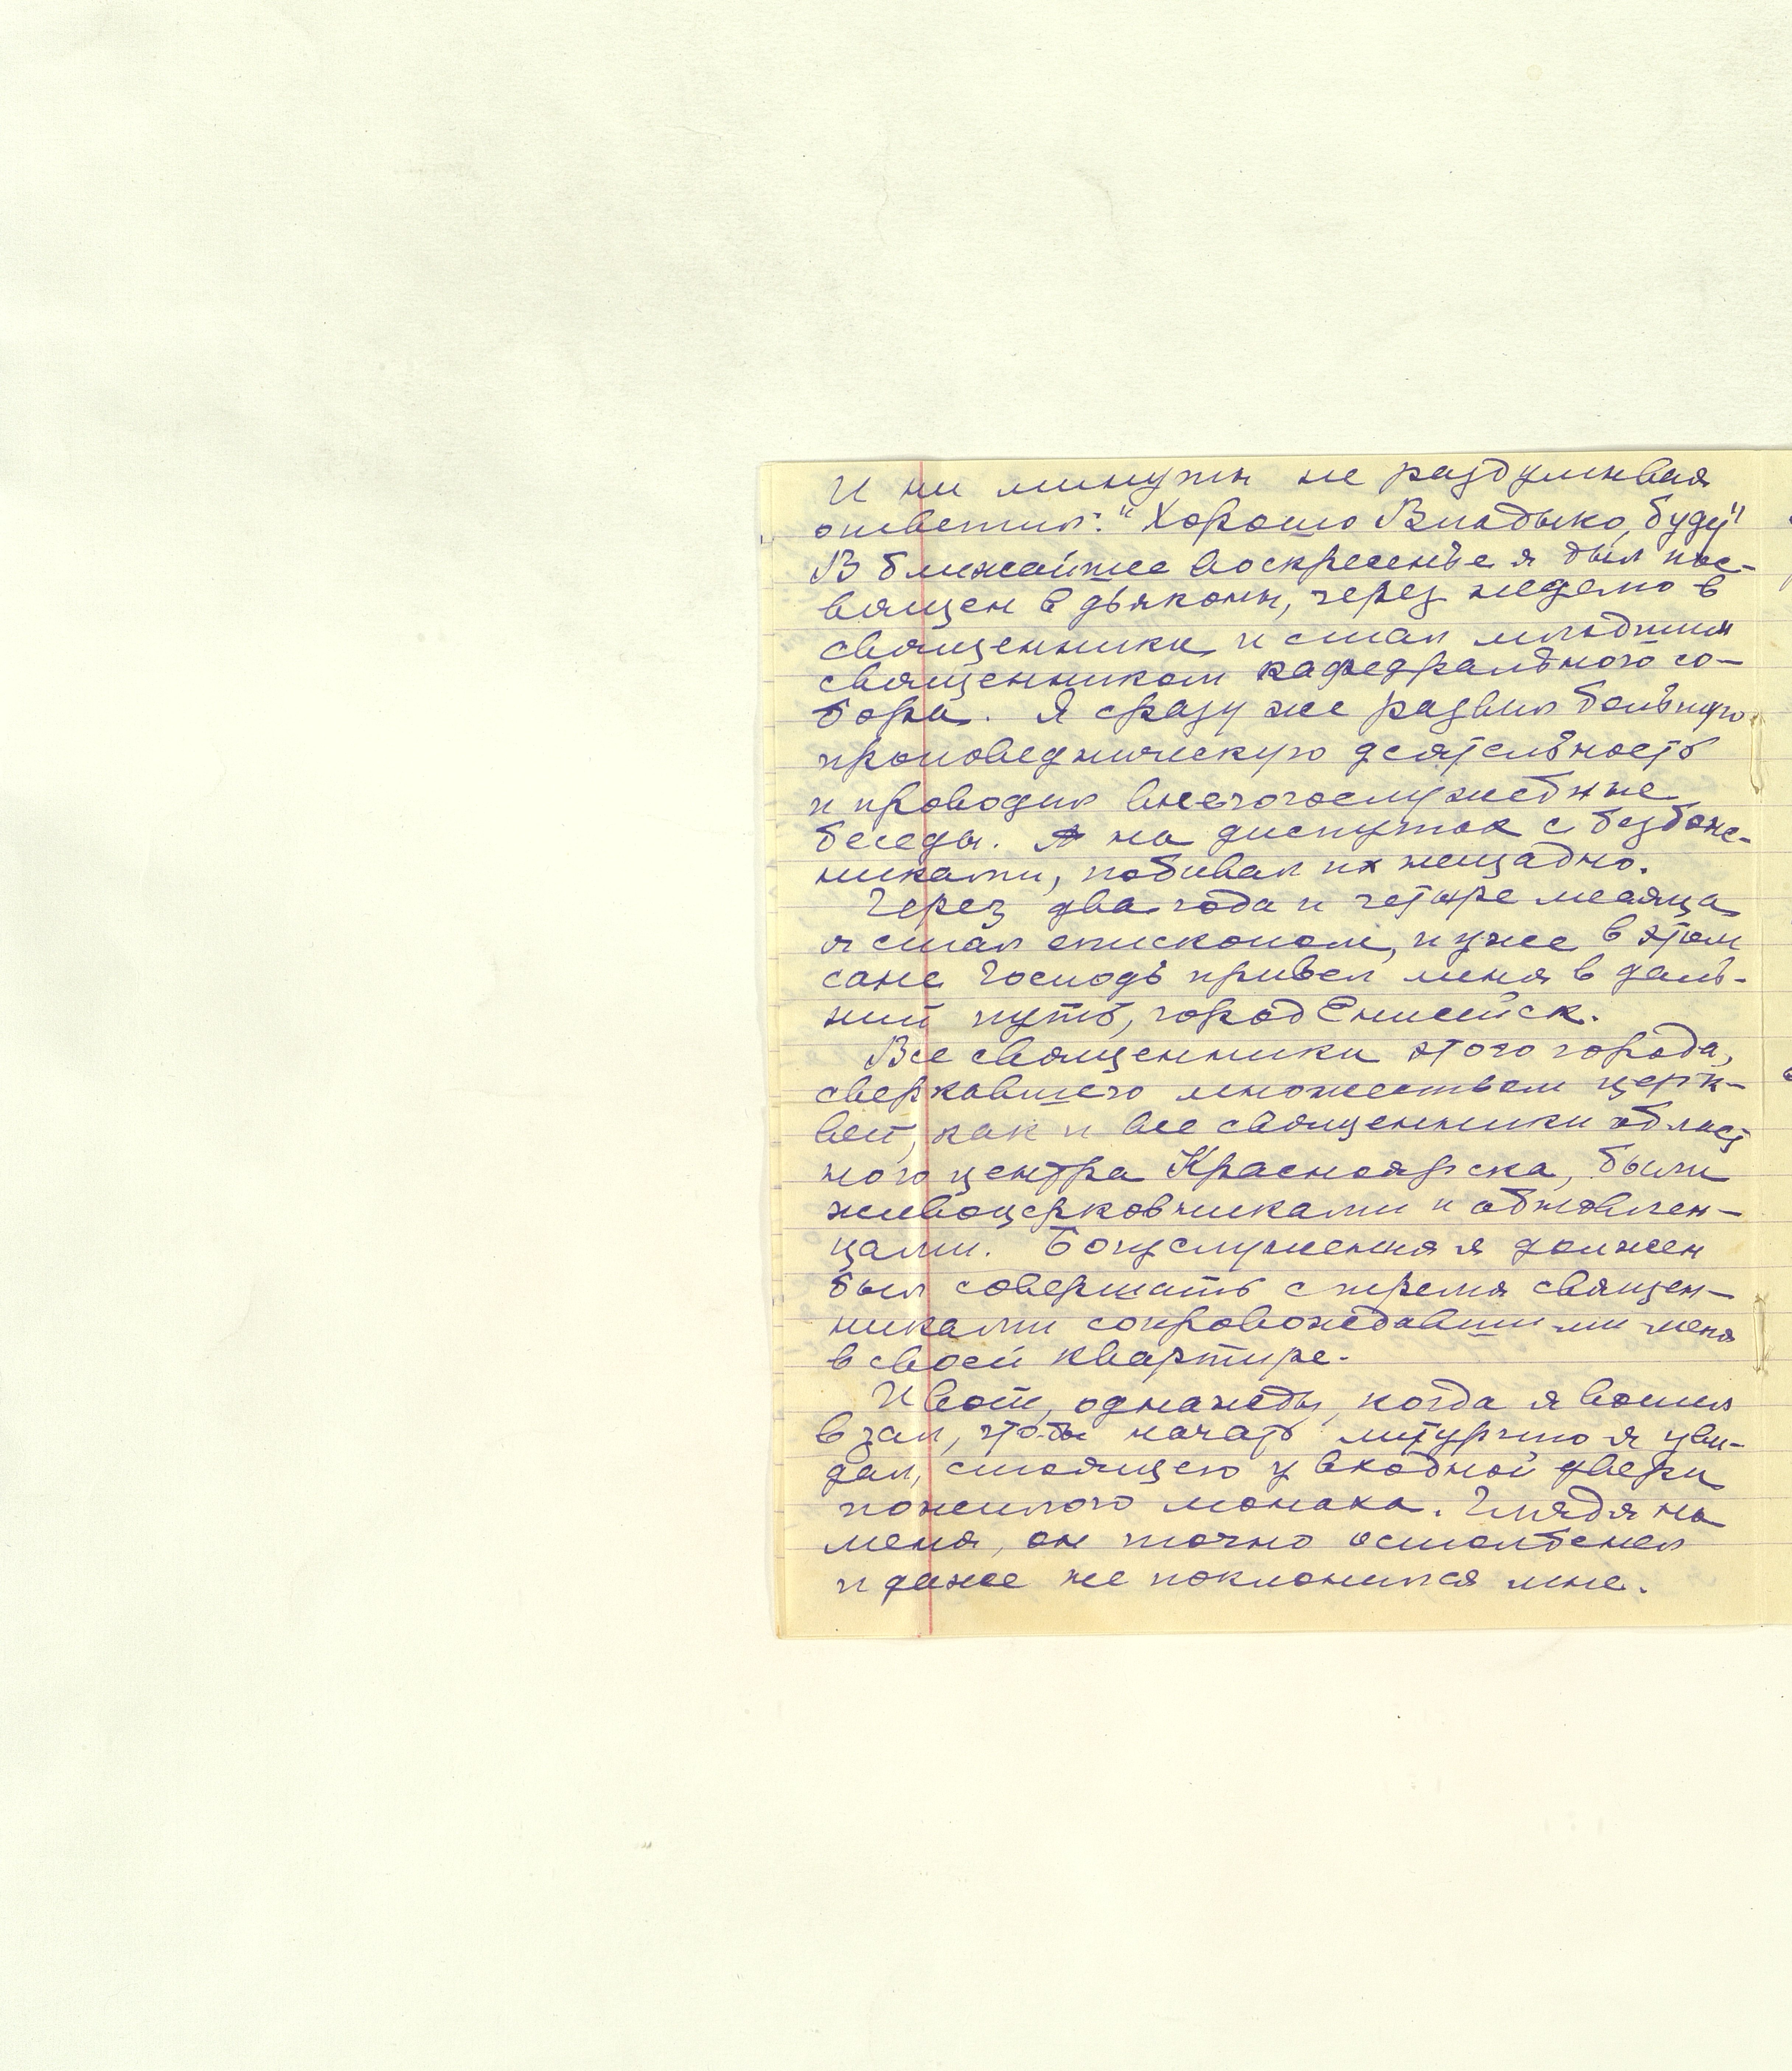 И ни минуты не раздумывая
ответил: "Хорошо Владыко, буду"
В ближайшее воскресенье я был пос-
вящен в дьяконы, через неделю в
священники и стал младшим
священником кафедрального со-
бора. Я сразу же развил большую
проповедническую деятельность
и проводил внебогослужебные
беседы. А на диспутах с безбож-
никами, побивал их нещадно.
Через два года и четыре месяца
я стал епископом, и уже в этом
сане Господь привел меня в даль-
ний путь, город Енисейск.
Все священники этого города,
сверкавшего множеством церк-
вей, как и все священники област
ного центра Красноярска, были
живоцерковниками и обновлен-
цами. Богуслужения я должен
был совершать с тремя священ-
никами сопровождавшими меня
в своей квартире.
И вот, однажды, когда я вошел
в зал, что-бы начать литургию я уви-
дал, стоящего у входной двери
пожилого монаха. Глядя на
меня, он точно остолбенел
и даже не поклонился мне.